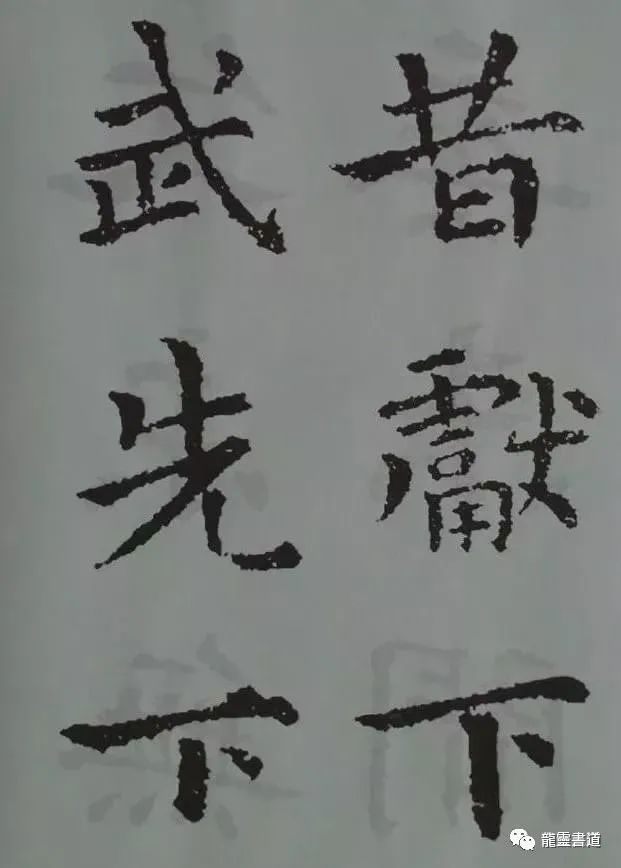 昔獻下
武先下
龍靈書道